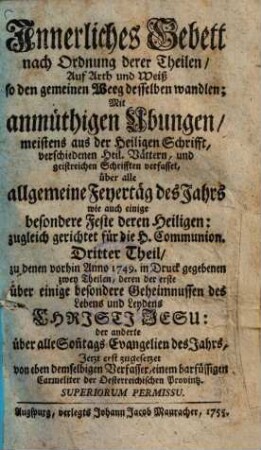 Innerliches Gebett
nach Ordnung derer Theilen/
Auf Arth und Weiß
so den gemeinen Weeg desselben wandlen;
Mit
anmüthigen Übungen/
meistens aus der Heiligen Schrifft,
verschiedenen Heil. Vättern, und
geistreichen Schrifften verfasset,
über alle
allgemeine Feyertäg des Jahrs
wie auch einige
besondere Feste deren Heiligen:
zugleich gerichtet für die H. Communion.
Dritter Theil/
zu denen vorhin Anno 1749. in Druck gegebenen
zwey Theilen, deren der erste
über einige besondere Geheimnussen des
Lebens und Leydens
CHRISTI JESU:
der anderte
über alle Soñtags Evangelien des Jahrs,
Jetzt erst zugesetzet
von eben demselbigen Verfasser, einem barfüssigen
Carmeliter der Oesterreichischen Provintz.
SUPERIORUM PERMISSU.
Augspurg, verlegts Johann Jacob Mauracher, 1755.